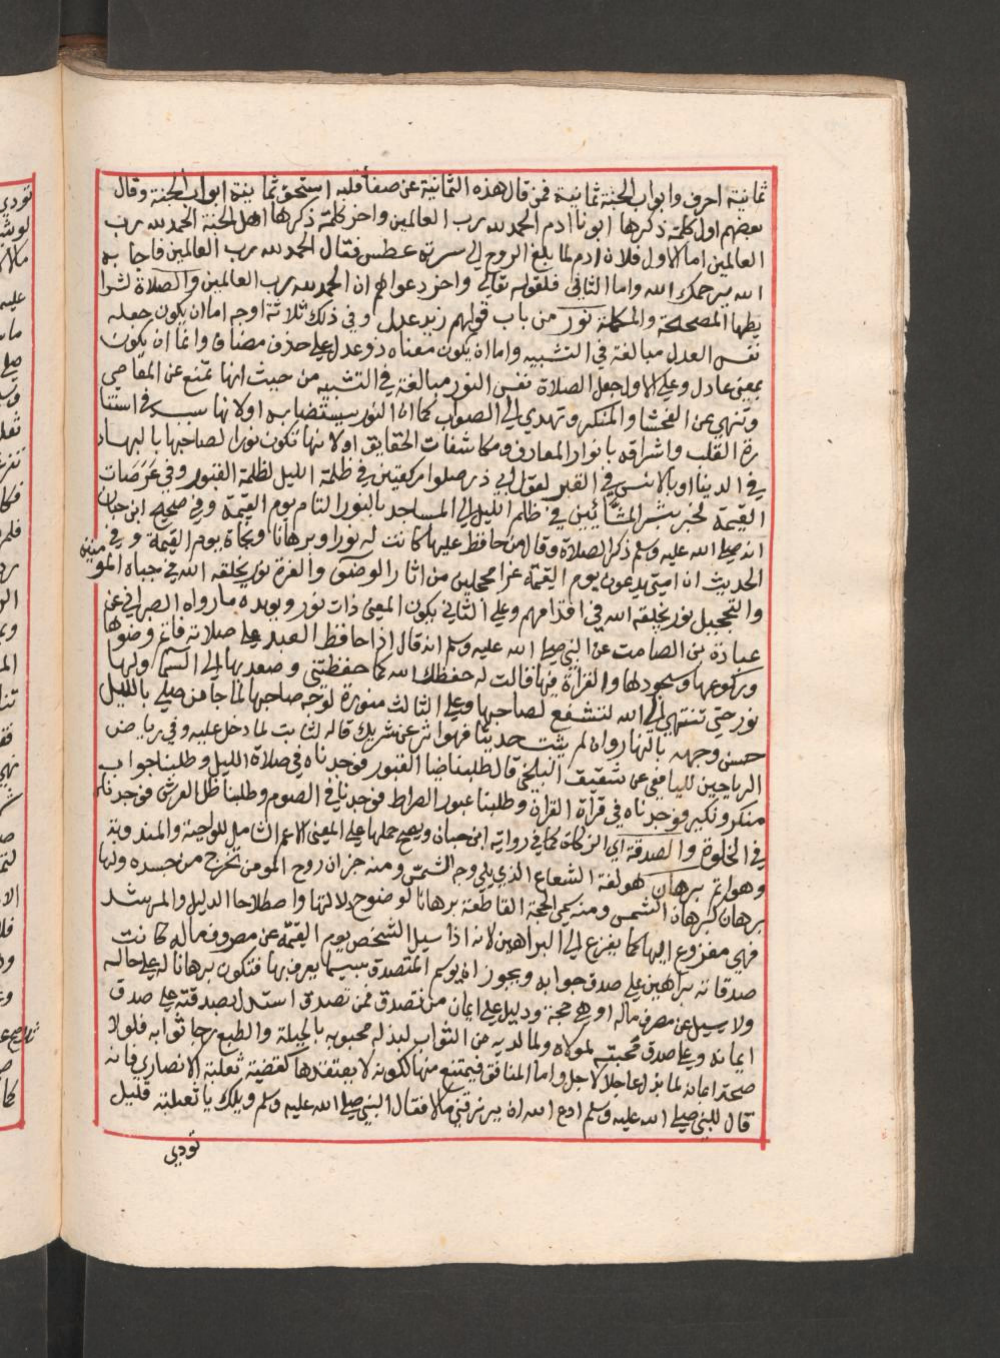 ثمانية احرف وابواب الجنة ثمانية فمن قال هذه الثمانية عن صفأ قلبه استحق ثمانية ابواب الجنة وقال
بعضهم اول كلمة ذكرها ابونا ادم الحمد لله رب العالمين واخر كلمة ذكرها اهل الجنة الحمد لله رب
العالمين اما الاول فلان ادم لما بلغ الروح الى سرته عطس فقال الحمد لله رب العالمين فاجابه
الله يرحمك الله واما الثاني فلقوله تعالى واخر دعواهم ان الحمد لله رب العالمين والصلاة لشرا
يطها المصححة والمكملة نور من باب قولهم زيد عدل وفي ذلك ثلاثة اوجه اما ان يكون جعله
نفس العدل مبالغة في التشبيه واما ان يكون معناه ذو عدل على حذف مضاف واما ان يكون
بمعنى عادل وعلى الاول جعل الصلاة نفس النور مبالغة في التشبيه من حيث انها تمنع عن المعاصي
وتنهى عن الفحشا والمنكر وتهدي الى الصواب كما ان النور يستضابه او لانها سبب في استنا
رة القلب واشراقه بانوار المعارف ومكاشفات الحقايق او لانها تكون نورا لصاحبها بالبهاء
في الدنيا وبالانس في القبر لقول ابي ذر صلوا ركعتين في ظلمة الليل لظلمة القبور وفي عرصات
القيمة لخبر بشر المشائين في ظلم الليل الى المساجد بالنور التام يوم القيمة وفي صحيح ابن حبان
انه صلى الله عليه وسلم ذكر الصلاة وقال من حافظ عليها كانت له نورا وبرهانا ونجاة يوم القيمة وفي
الحديث ان امتي يدعون يوم القيمة غرا محجلين من اثار الوضوء والغرة نور يخلقه الله في جباه المومنين
والتحجيل نور يخلقه الله في اقدامهم وعلى الثاني يكون المعنى ذات نور ويويده ما رواه الطبراني عن
عبادة بن الصامت عن النبي صلى الله عليه وسلم انه قال اذا حافظ العبد على صلاته فاتم وضوها
وركوعها وسجودها والقراة فيها قالت له حفظك الله كما حفظتني وصعد بها الى السما ولها
نور حتى تنتهي الى الله لتشفع لصاحبها وعلى الثالث منورة لوجه صاحبها لما جا من صلى بالليل
حسن وجهه بالنهار رواه لم يثبت حديثا فهو اثر عن شريك قاله لثابت لما دخل عليه وفي رياض
الرياحين لليافعي عن شقيق البلخي قال طلبنا ضيا القبور فوجدناه في صلاة الليل وطلبنا جواب
منكر ونكير فوجدناه في قراة القران وطلبنا عبور الصراط فوجدناه في الصوم وطلبنا ظل العرش فوجدناه
في الخلوة والصدقة اي الزكاة كما في رواية ابن حبان ويصح حملها على المعنى الاعم الشامل للواجبة والمندوبة
وهو اتم برهان هو لغة الشعاع الذي يلي وجه الشمس ومنه خبر ان روح المومن تخرج من جسده ولها
برهان كبرهان الشمس ومنه سمي الحجة القاطعة برهانا لوضوح دلالتها واصطلاحا الدليل والمرشد
فهي مفزوع اليها كما يفزع الى البراهين لانه اذا سيل الشخص يوم القيمة عن مصرف ماله كانت
صدقاته براهين على صدق جوابه ويجوز ان يوسم المتصدق بسيما يعرف بها فتكون برهانا له على حاله
ولا يسيل عن مصرف ماله او هي حجة ودليل على ايمان من تصدق فمن تصدق استدل بصدقته على صدق
ايمانه وعلى صدق محبته لمولاه ولما لديه من الثواب لبذله محبوبه بالجبلة والطبع رجا ثوابه فلولا
صحة ايمانه لما بذل عاجلا لاجل واما المنافق فيمتنع منها لكونه لا يعتقدها كقضية ثعلبة الانصاري فانه
قال للنبي صلى الله عليه وسلم ادع الله ان يرزقني مالا فقال النبي صلى الله عليه وسلم ويلك يا ثعلبة قليل
تودي